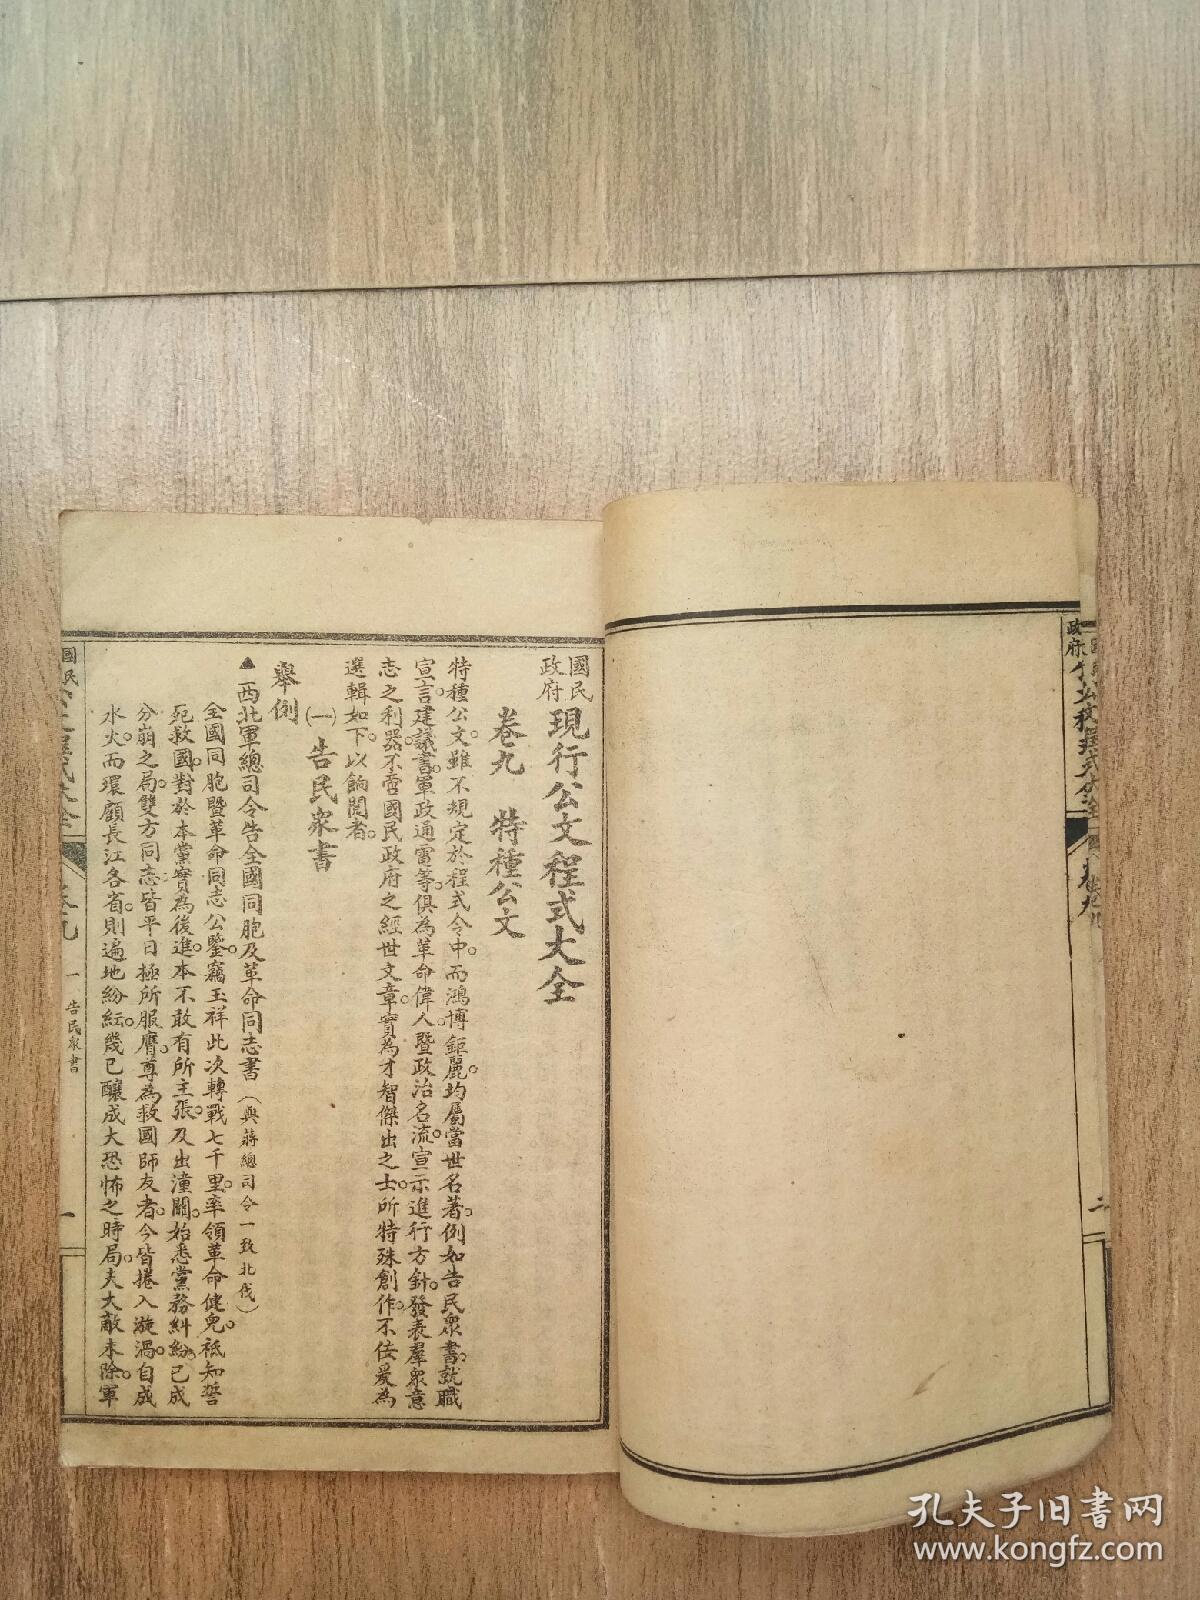 國民政府現行公文程式大全
卷九　特種公文
特種公文。雖不規定於程式令中。而鴻博鉅麗。均屬當世名著。例如告民衆書。就職
宣言。建議書。軍政通電等。俱為革命偉人。暨政治名流。宣示進行方針。發表羣衆意
志之利器。不啻國民政府之經世文章。實為才智傑出之士。所特殊創作。不佞爰為
選輯如下。以餉閱者。
(一)告民衆書
舉例
▲西北軍總司令告全國同胞及革命同志書（與蔣總司令一致北伐）
全國同胞暨革命同志公鑒。竊玉祥此次轉戰七千里。率領革命健兒。祗知誓
死救國。對於本黨實為後進。本不敢有所主張。及出潼關。始悉黨務糾紛。已成
分崩之局。雙方同志。皆平日極所服膺。尊為救國師友者。今皆捲入漩渦。自成
水火。而環顧長江各省。則遍地紛紜。幾已釀成大恐怖之時局。夫大敵未除。軍
國民
卷九
一 告民衆書
一
政府
二
孔夫子旧書网
www.kongfz.com